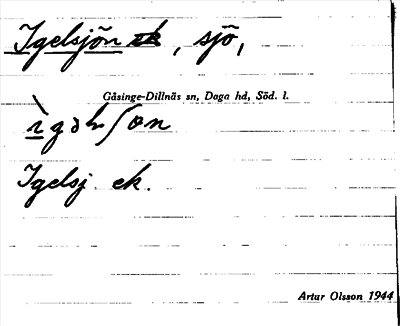 Igelsjön ek, sjö,
Gåsinge-Dillnäs sn, Daga hd, Söd. l.
Igelsj. ek.
Artur Olsson 1944